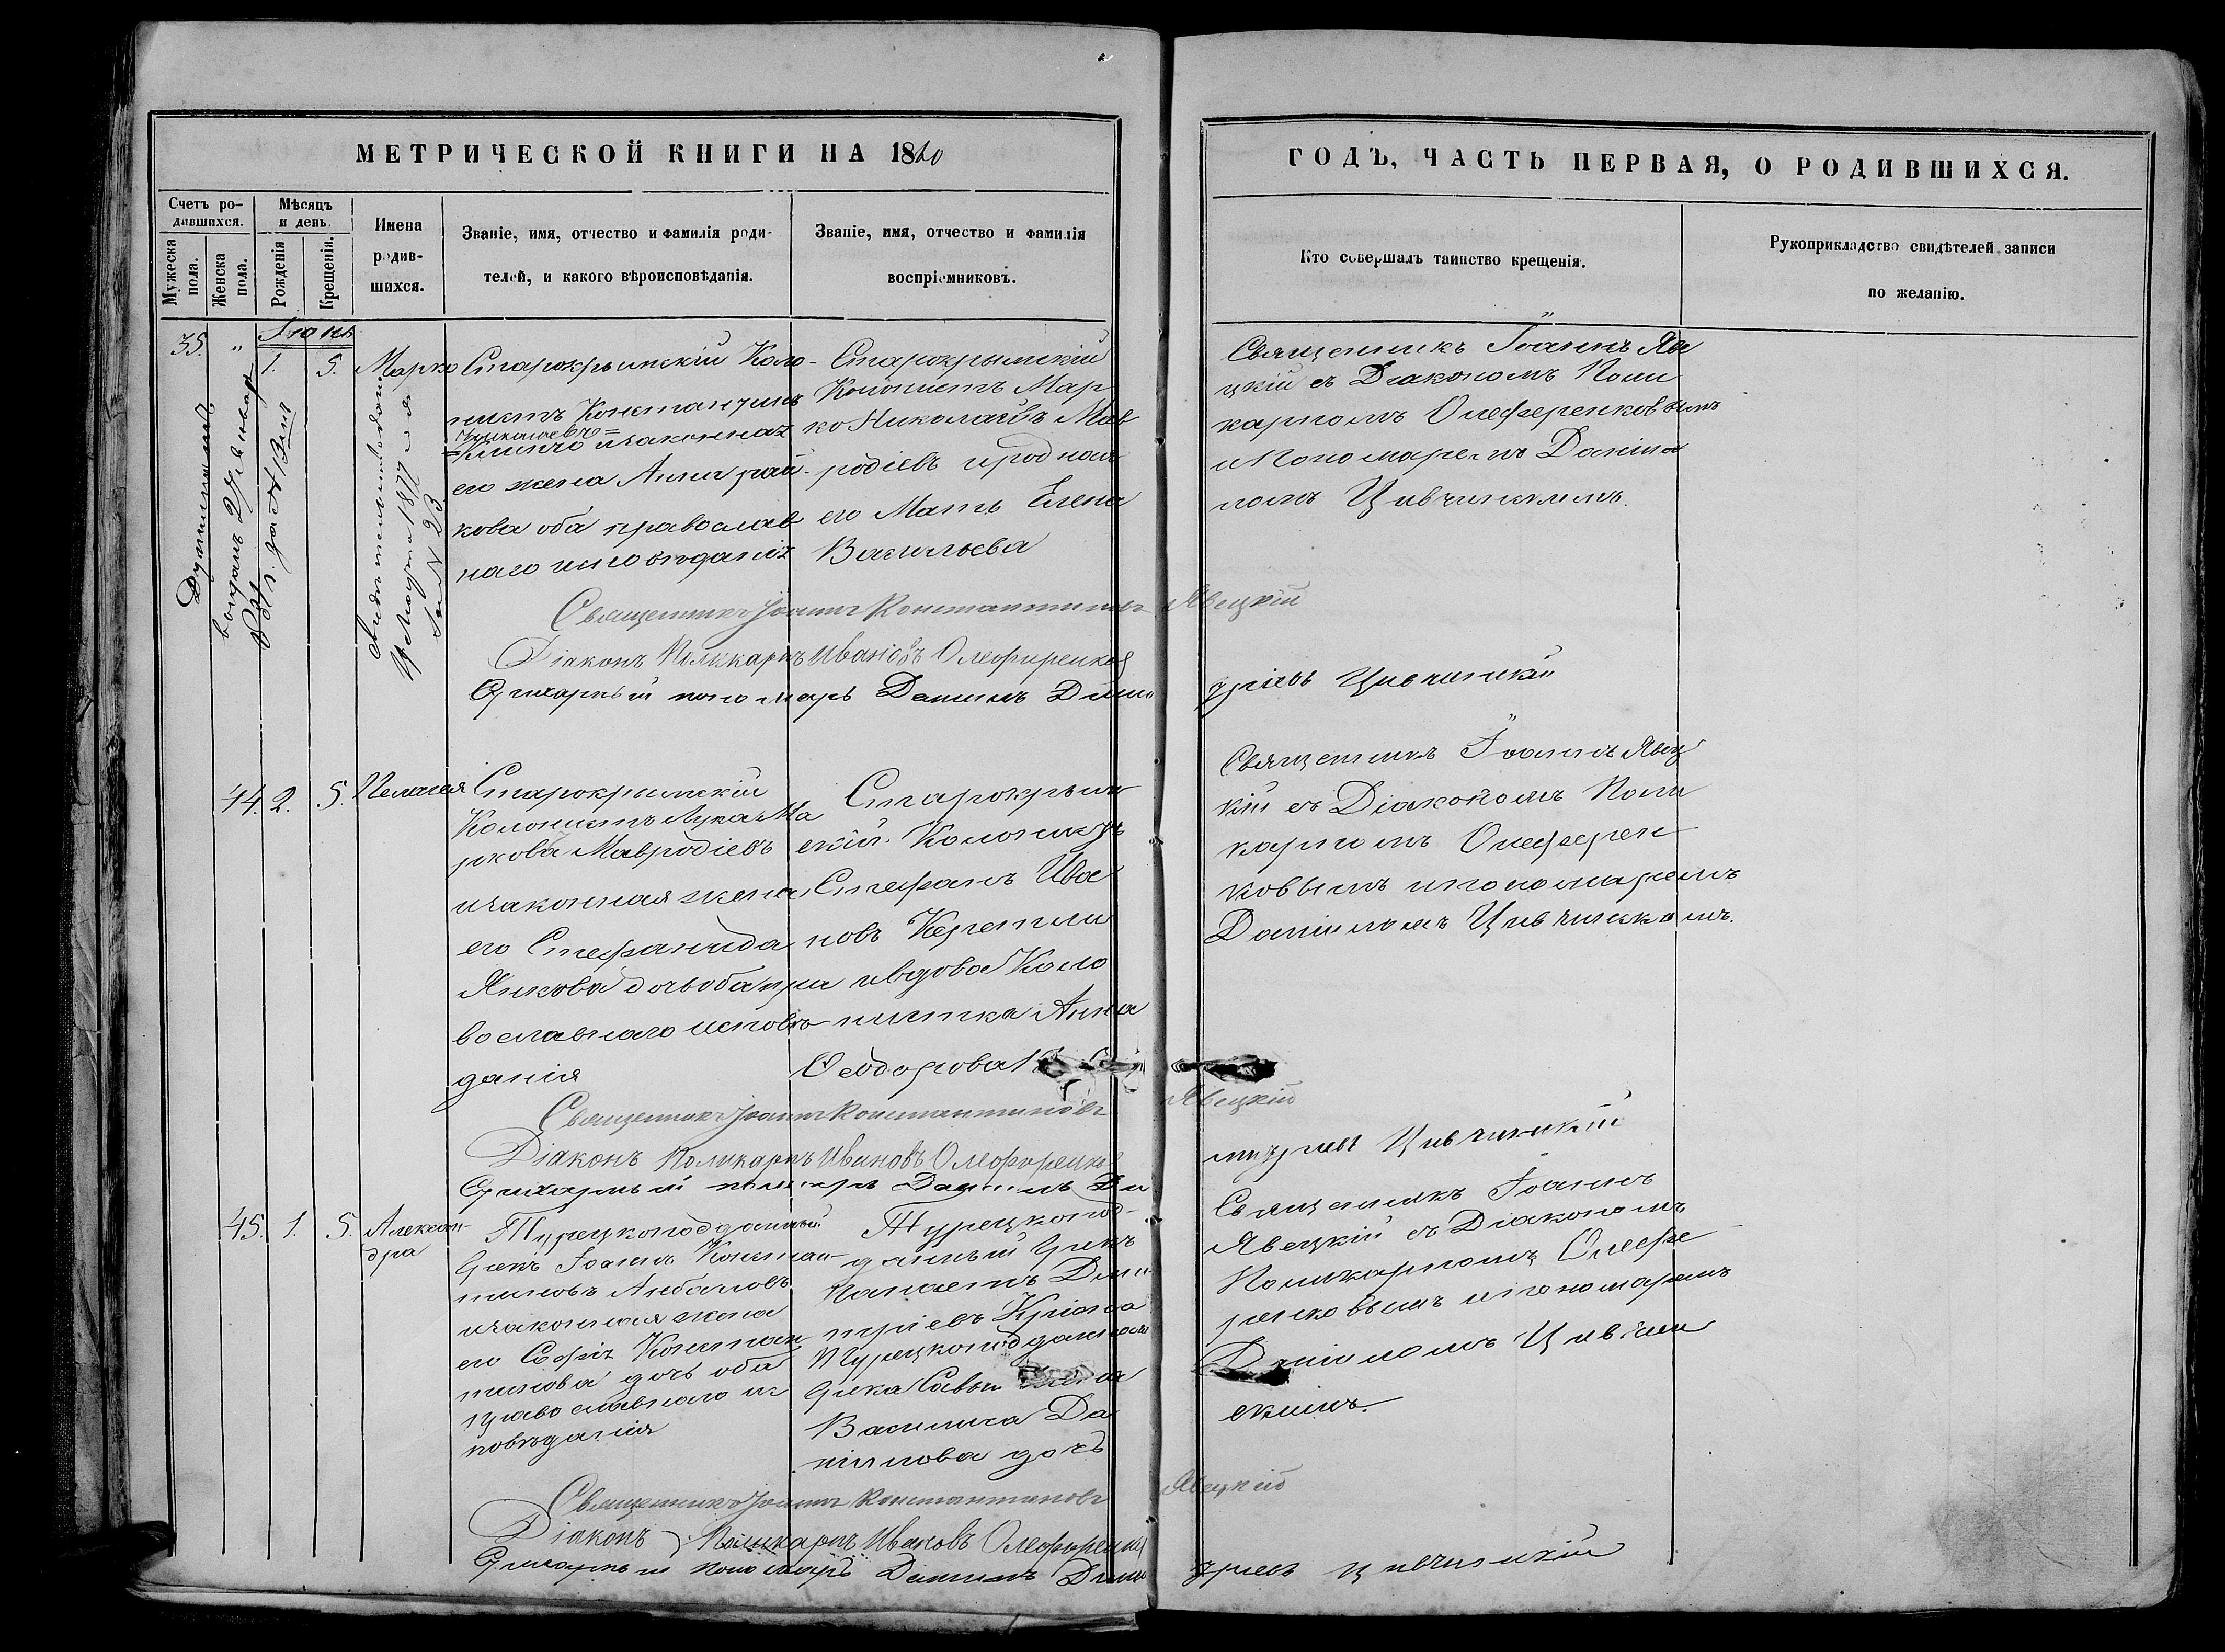 МЕТРИЧЕСКОЙ КНИГИ НА 1860
ГОДЪ, ЧАСТЬ ПЕРВАЯ, О РОДИВШИХСЯ.
Счетъ ро-
дившихся.
Мѣсяцъ
и день.
Мужеска
пола.
Женска
пола.
Рожденія
Крещенія.
Имена
родив-
шихся.
Званіе, имя, отчество и фамилія роди-
телей, и какого вѣроисповѣданія.
Званіе, имя, отчество и фамилія
воспріемниковъ.
Кто совершалъ таинство крещенія.
Рукоприкладство свидѣтелей записи
по желанію.
Іюнь
35. " 1. 5. Марко
Старокрымскій Коло-
нистъ Константинъ
Николаевъ=
изаконная
его жена Анна
кова оба православ
наго исповѣданія
Старокрымскій
Колонистъ Мар
ко Николаевъ Мав
родіевъ иродная
его Мать Елена
Васильева
Священникъ Іоаннъ Яв
цкій съ Діакономъ Поли
карпомъ Олеференковымъ
иПономаремъ Даніи
ломъ Цивчинскимъ.
выданъ 27 Январ
1877
за N 23
Священникъ Іоаннъ Константиновъ Явецкій
Діаконъ Поликарпъ Ивановъ Олефиренко
Стихарный пономарь Даніилъ Дими
тріевъ Цивчинскій
44. 2. 5. Пелагея
Старокрымскій
Колонистъ Лука Ма
ркова Мавродіевъ
изаконная жена
его Стефанида
Янкова дочь оба пра
вославнаго исповѣ
данія
Старокрым
скій Колонистъ
Стефанъ Ива
новъ
ивдова Коло
нистка Анна
Ѳеодорова
Священникъ Іоаннъ Явец
кій съ Діакономъ Поли
карпомъ Олеферен
ковымъ ипономаремъ
Даніиломъ Цивчинскимъ.
Священникъ Іоаннъ Константиновъ Явецкій
Діаконъ Поликарпъ Ивановъ Олефоренко
Стихарный пономарь Даніилъ Ди
митріевъ Цивчинскій
45. 1. 5. Алексан-
дра
Турецкоподданный
Грекъ Іоаннъ Констан-
тиновъ
изаконная жена
его Софія Констан
тинова дочь оба
православнаго ис
повѣданія
Турецкопод-
данный Грекъ
Дими
тріевъ
Турецкоподданнаго
Грека Савы
Василиса Да
нилова дочь
Священникъ Іоаннъ
Явецкій съ Діакономъ
Поликарпомъ Олефе
ренковымъ ипономаремъ
Даніиломъ Цивчин
скимъ.
Священникъ Іоаннъ Константиновъ Явецкій
Діаконъ Поликарпъ Ивановъ Олефоренко
Стихарный пономарь Даніилъ Дими
тріевъ Цивчинскій